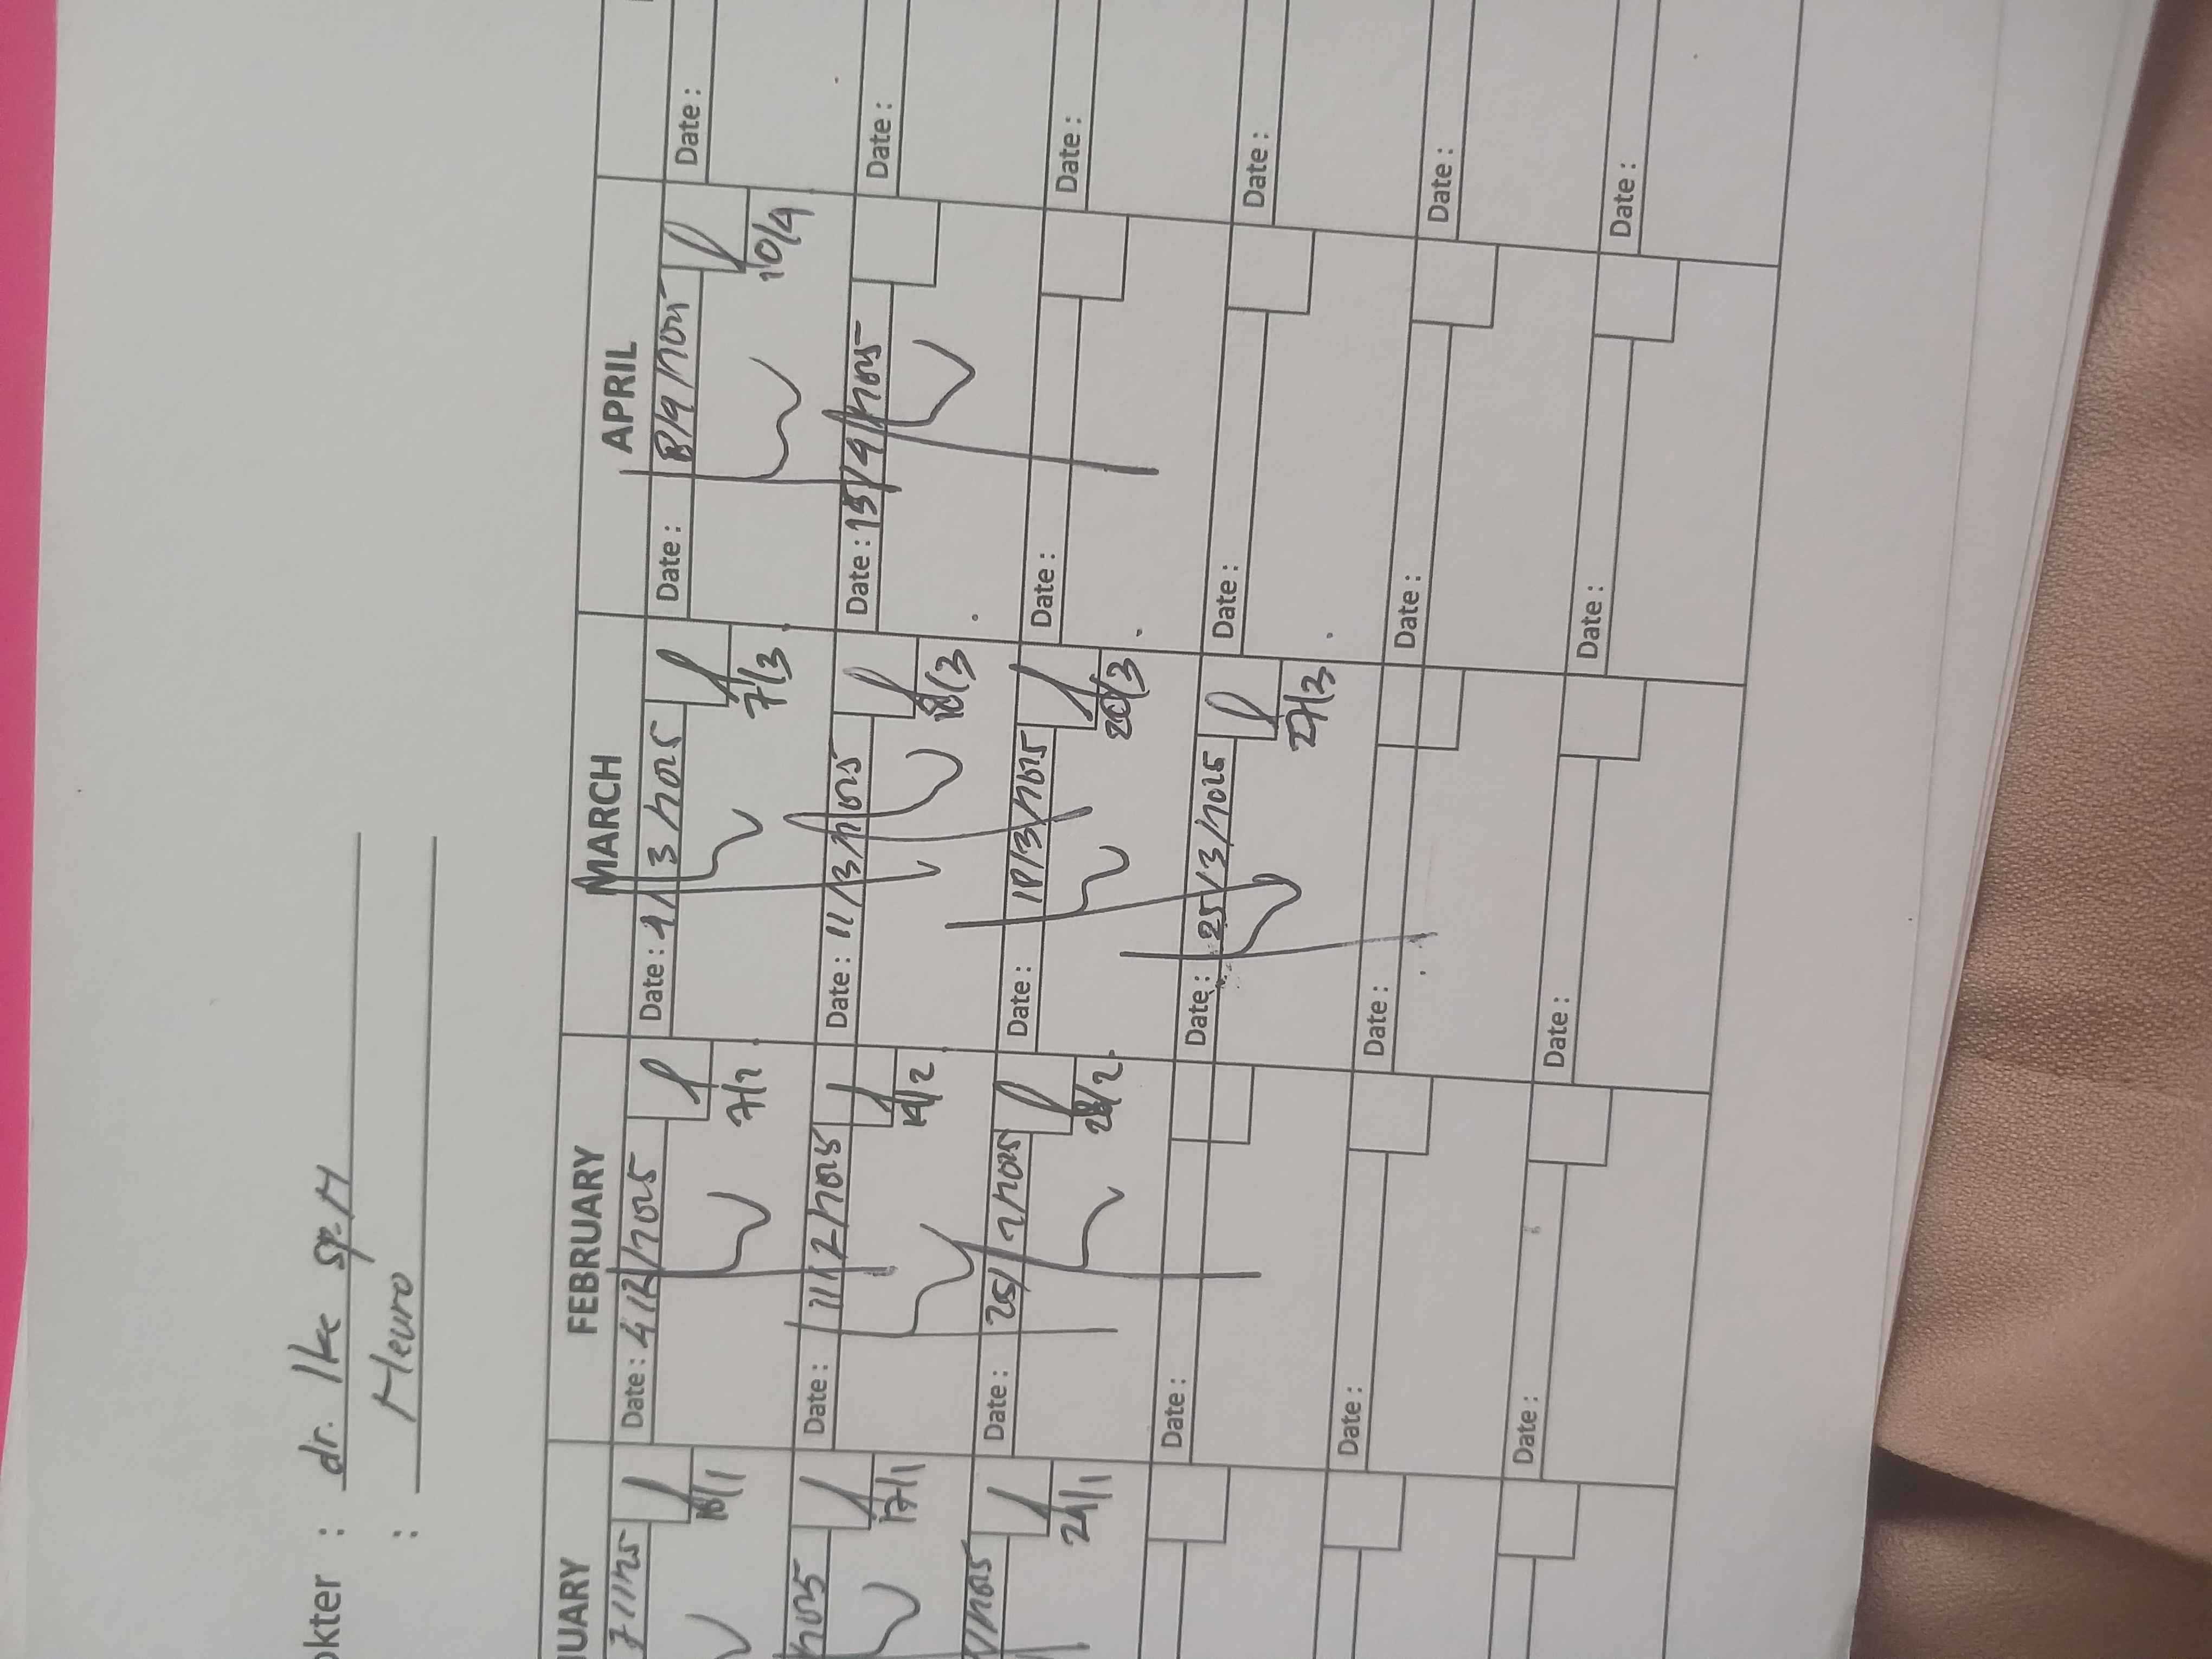 okter : dr. Ike Sp.M
: Neuro
UARY FEBRUARY MARCH APRIL
7/1/25 Date : 4/2/2025 Date : 4/3/2025 Date : 8/4/2025 Date :
10/1 7/2 7/3 10/4
2025 Date : 11/2/2025 Date : 11/3/2025 Date : 15/4/2025 Date :
17/1 14/2 18/3
/2025 Date : 25/2/2025 Date : 18/3/2025 Date : Date :
24/1 28/2 20/3
Date : Date : 25/3/2025 Date : Date :
27/3
Date : Date : Date : Date :
Date : Date : Date : Date :